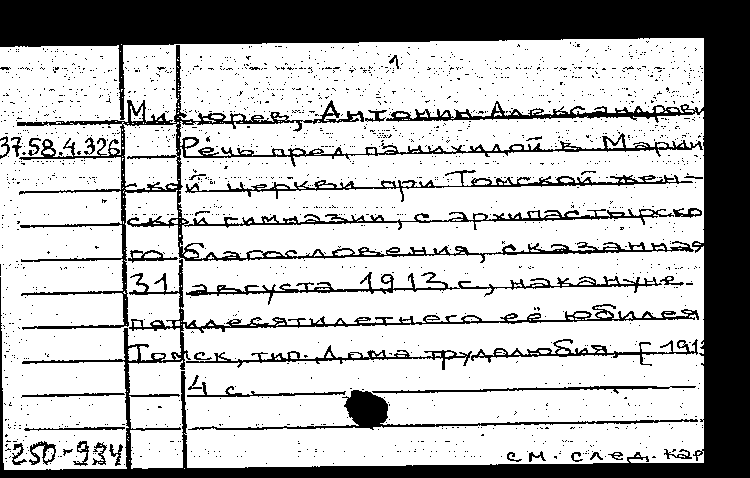 1
Мисюрев, Антонин Александрови
37.58.4.326 Речь пред панихидой в Мариин
ской церкви при Томской жен-
ской гимназии, с архипастырско
го благословения, сказанная
31 августа 1913 г., накануне
пятидесятилетнего её юбилея
Томск, тип. Дома трудолюбия, [1913
4 с.
250-934 см. след. кар